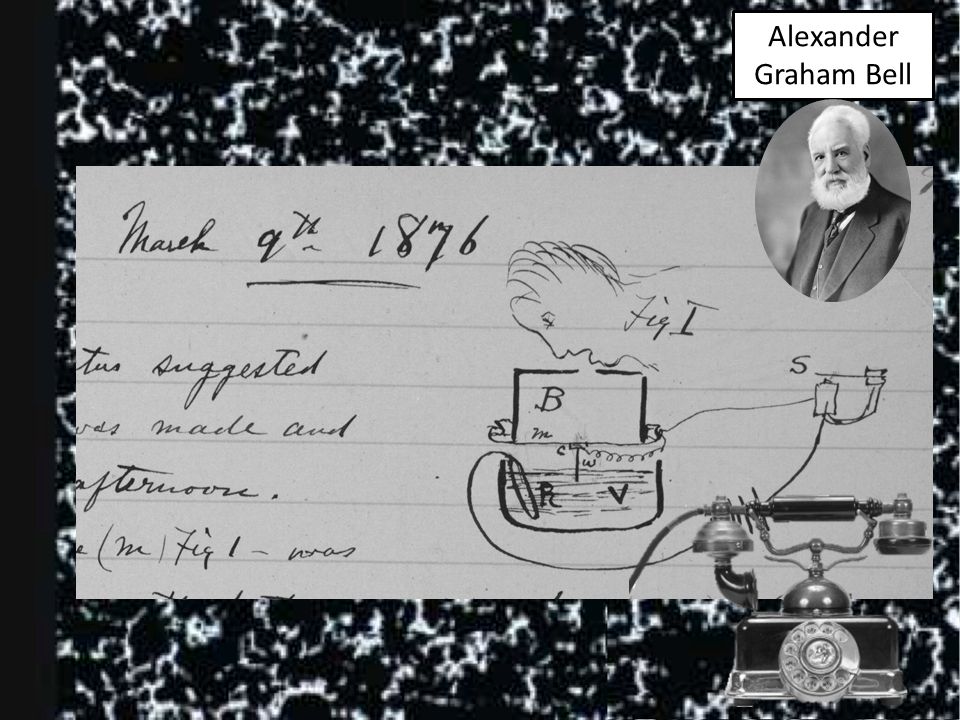 Alexander
Graham Bell
March 9th 1876
Fig I
tus suggested
S
B
was made and
m
c
w
P V
afternoon.
(m) Fig 1 - was